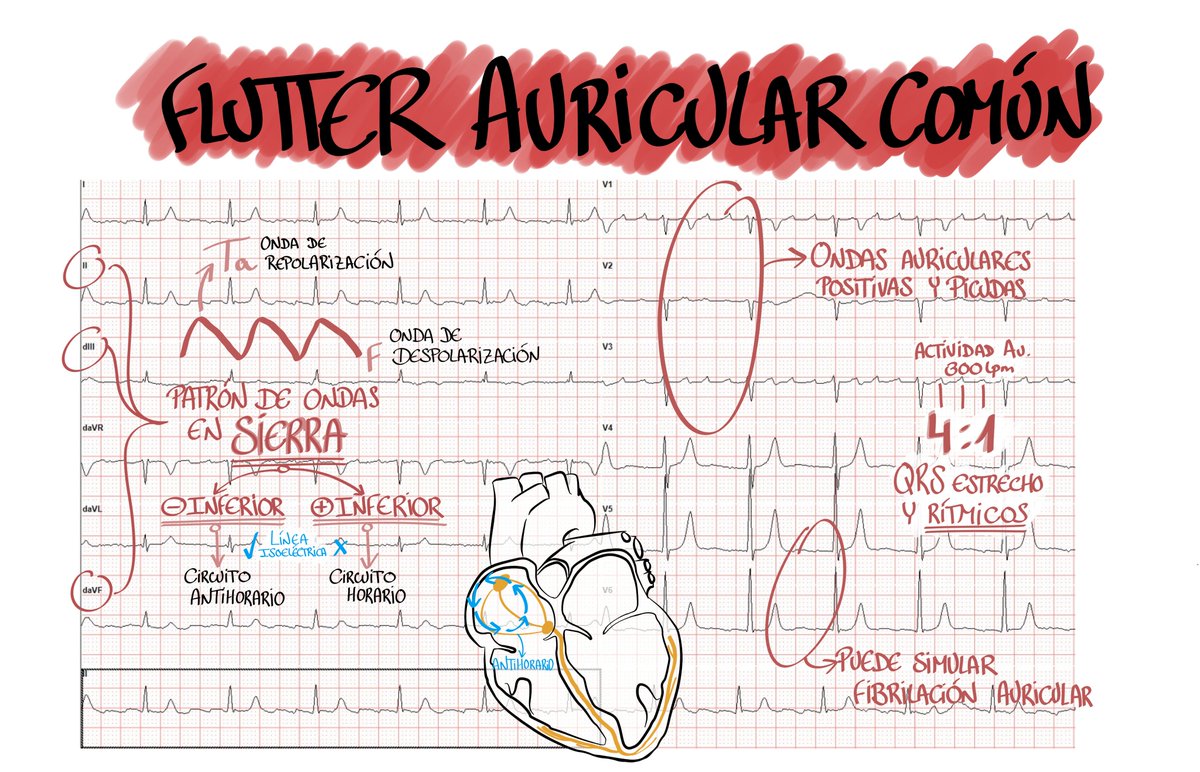 FLUTTER AURICULAR COMÚN
I
V1
II
V2
dIII
V3
daVR
V4
daVL
V5
daVF
V6
II
Ta
ONDA DE
REPOLARIZACIÓN
F
ONDA DE
DESPOLARIZACIÓN
PATRÓN DE ONDAS
EN SIERRA
- INFERIOR
+ INFERIOR
✓ LÍNEA
ISOELÉCTRICA X
CIRCUITO
ANTIHORARIO
CIRCUITO
HORARIO
ANTIHORARIO
ONDAS AURICULARES
POSITIVAS Y PICUDAS
ACTIVIDAD AU.
300 lpm
4:1
QRS ESTRECHO
Y RÍTMICOS
PUEDE SIMULAR
FIBRILACIÓN AURICULAR